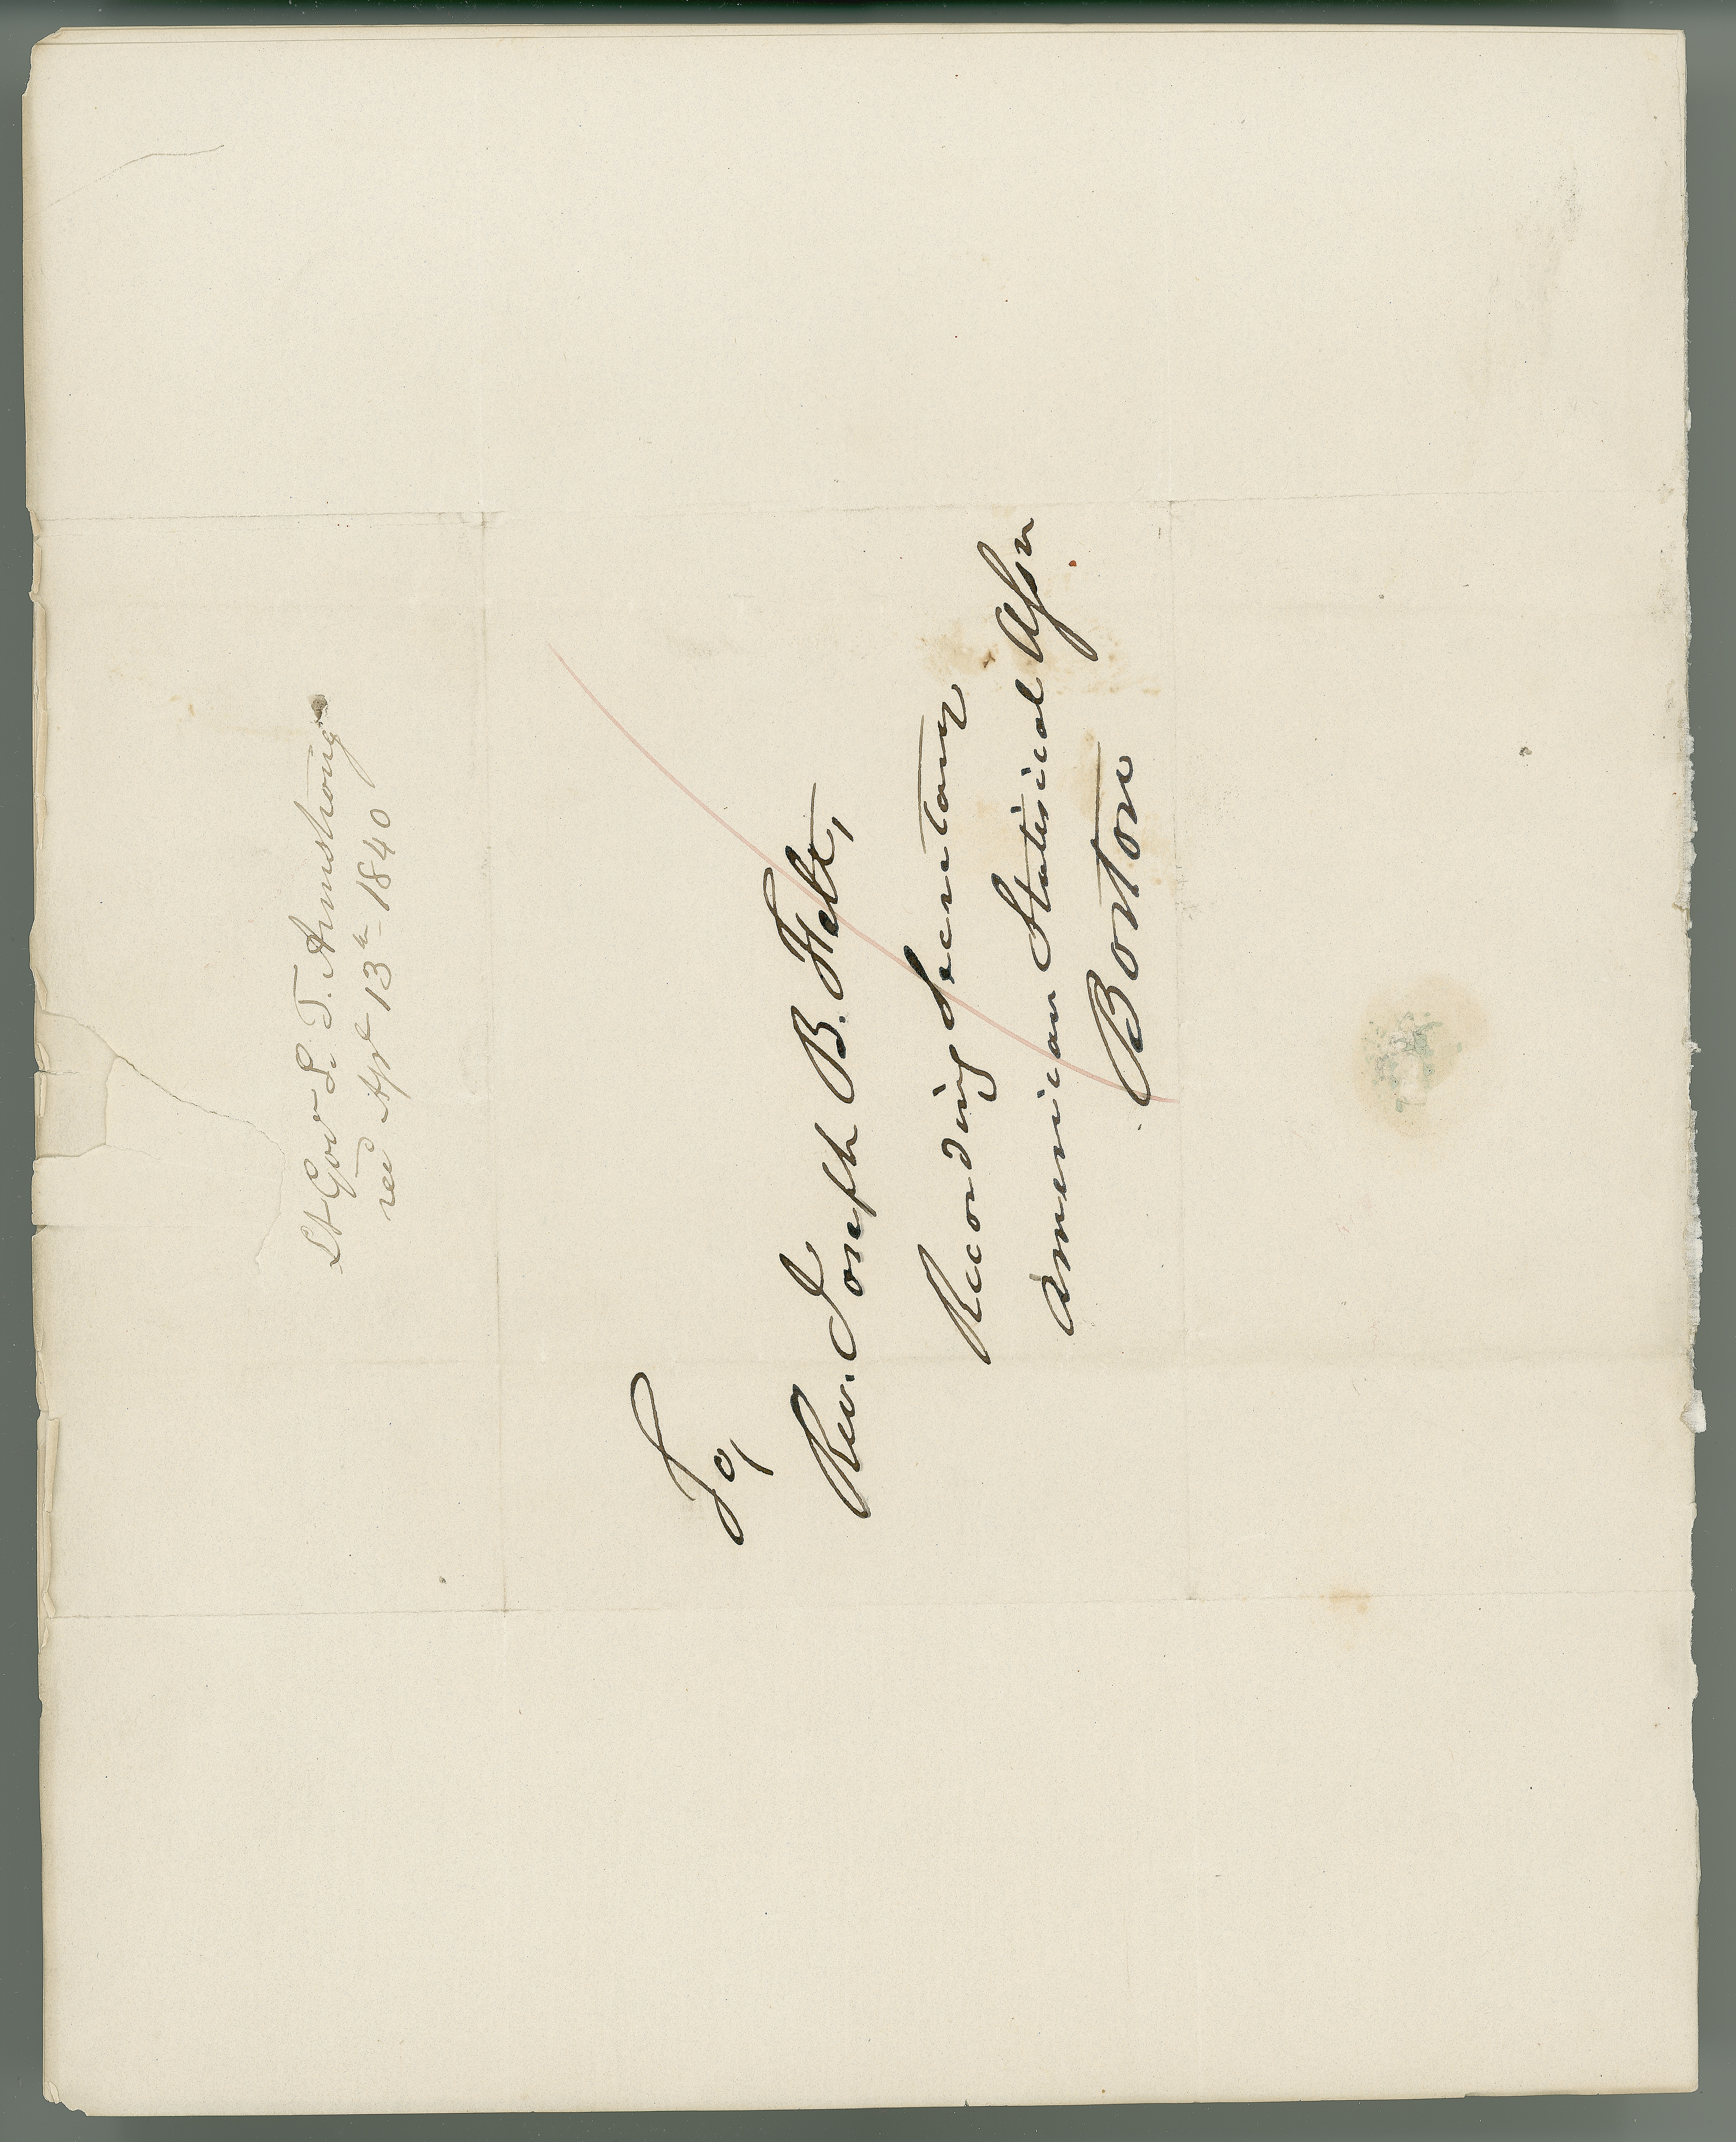 Lt Gov S. T. Armstrong
recd Apl 13th 1840
To,
Rev. Joseph B. Felt,
Recording Secretary
American Statistical Assn
Boston